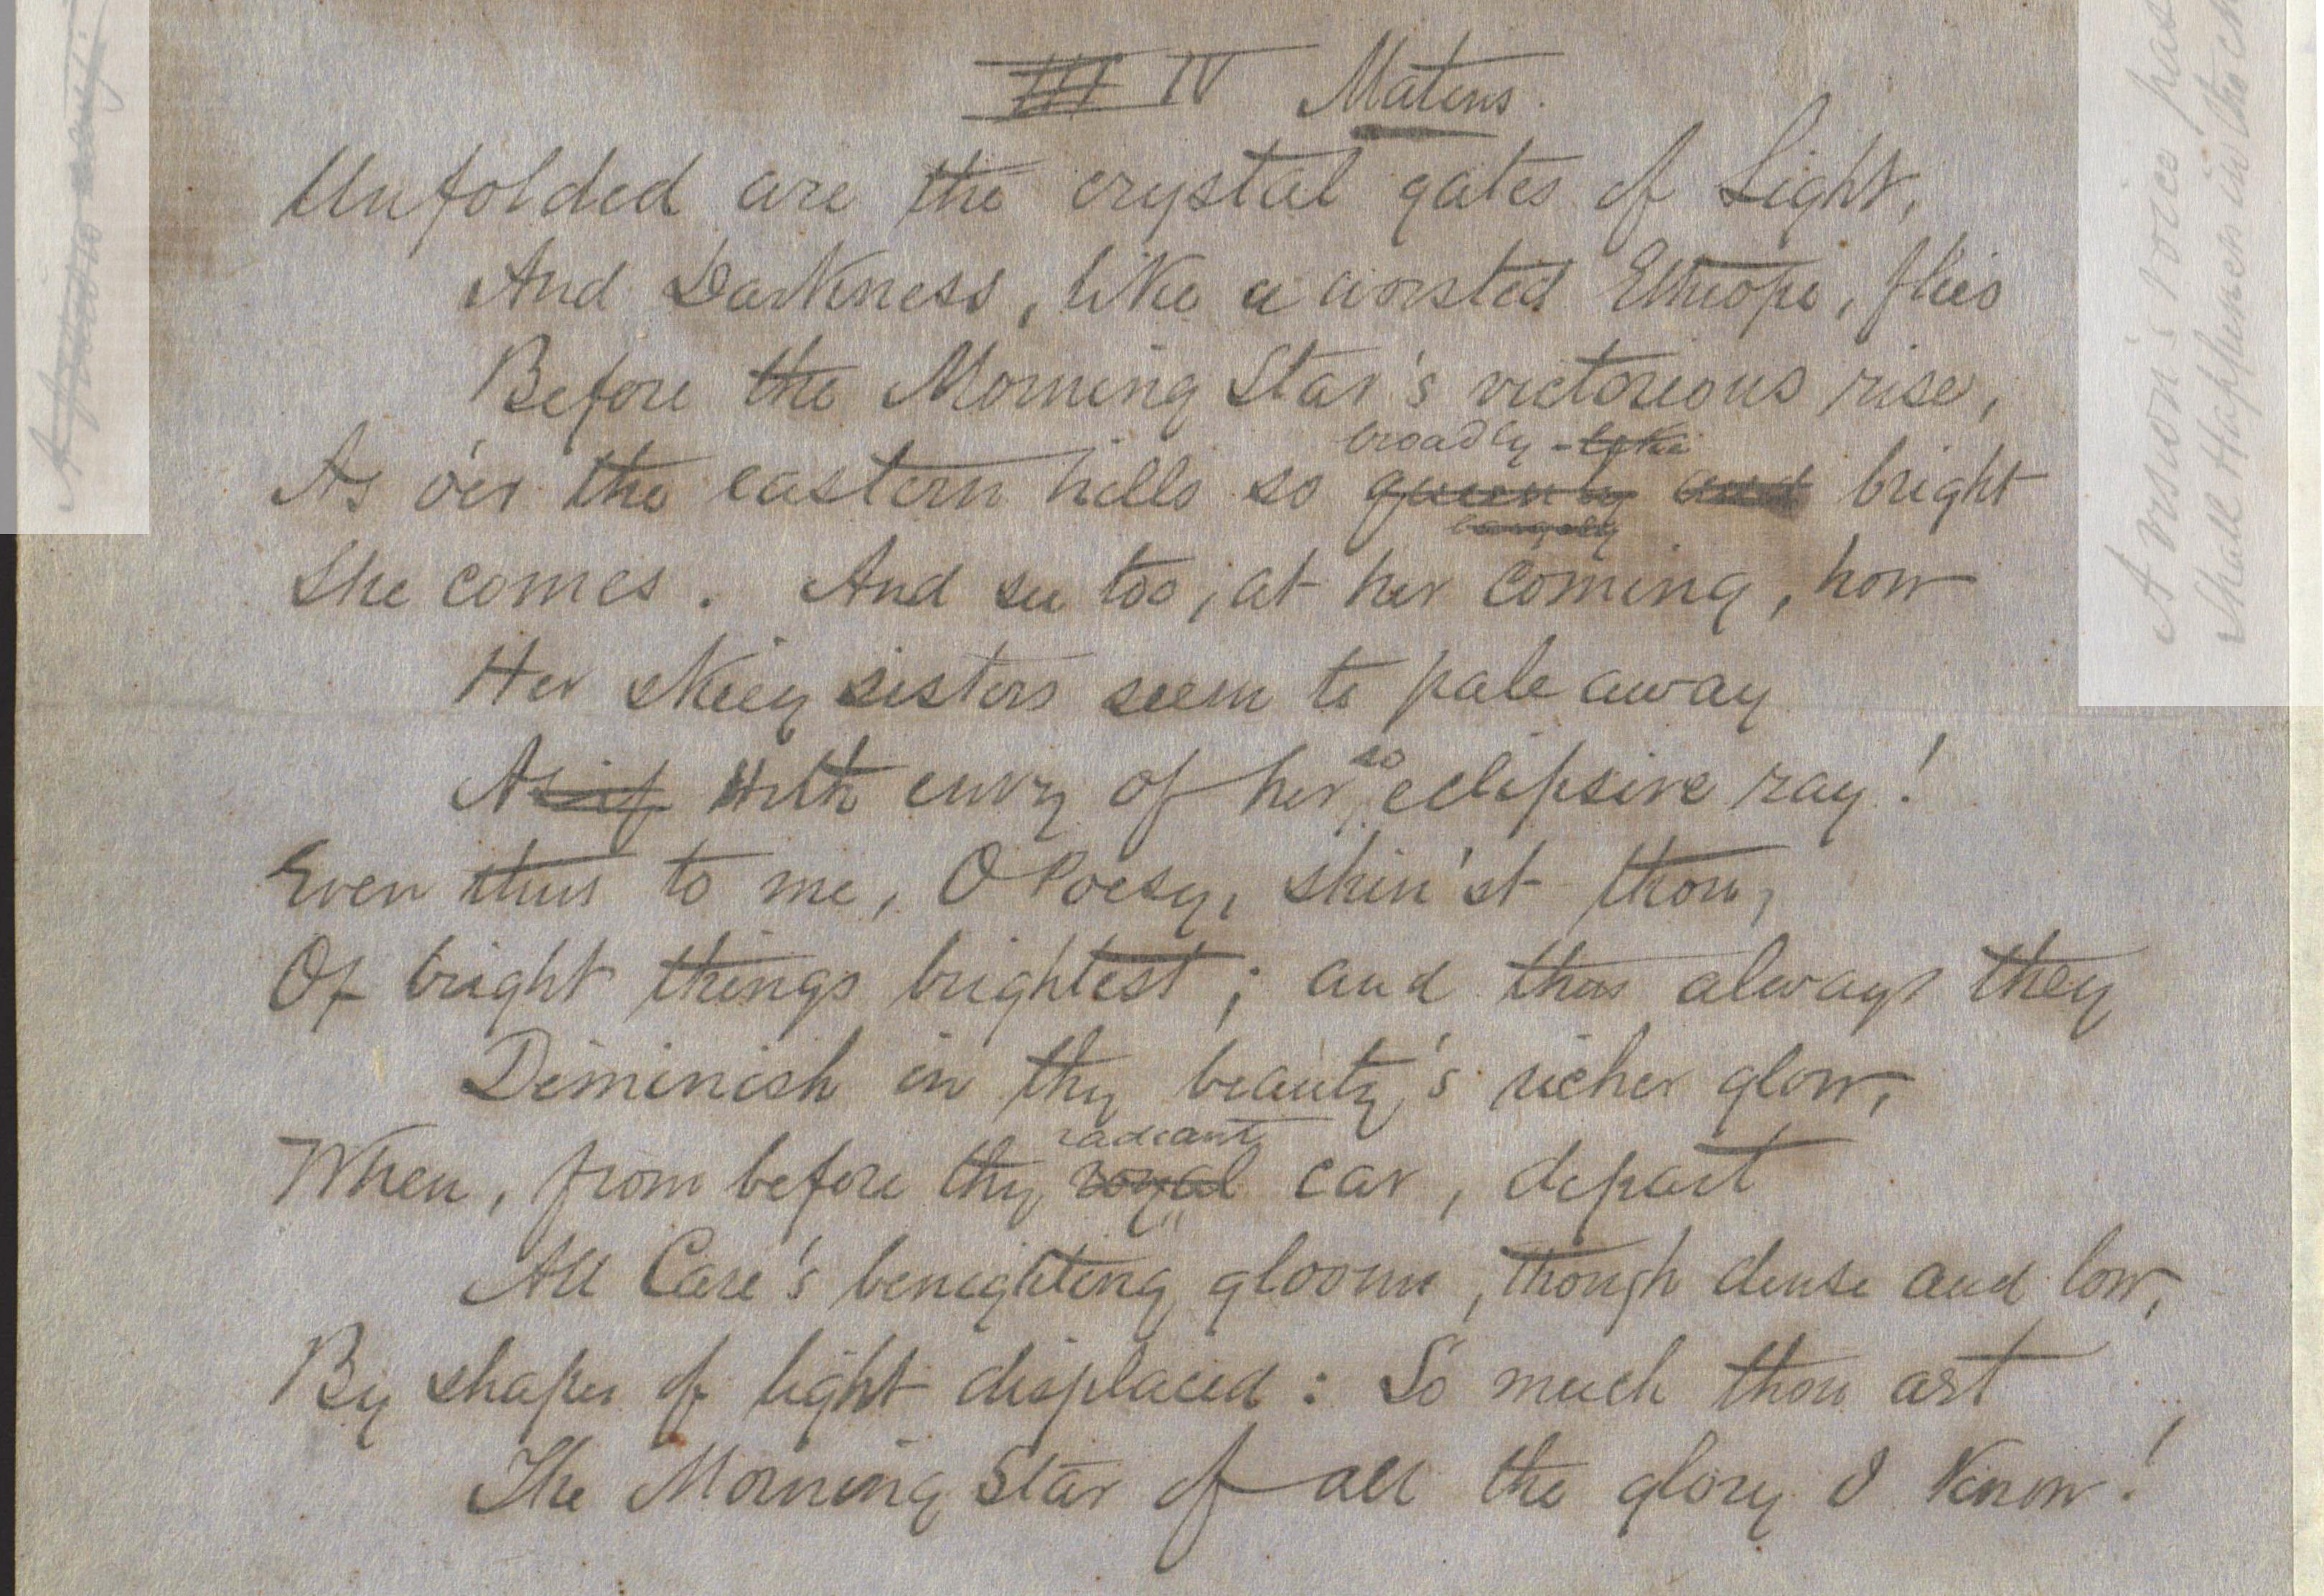 III IV Matins.
Unfolded are the crystal gates of Light,
And Darkness, like a worsted Ethiope, flies
Before the Morning Star's victorious rise,
broadly-like
As o'er the eastern hills so queenly and bright
She comes. And see too, at her coming, how
Her skiey sisters seem to pale away
so
As if With envy of her eclipsive ray!
Even thus to me, O Poesy, shin'st thou,
Of bright things brightest; and thus always they
Diminish in thy beauty's richer glow,
radiant
When, from before thy royal car, depart
All Care's benighting glooms, though dense and low,
By shapes of light displaced: So much thou art
The Morning Star of all the glory I know!
A vision's voice
Shall Happiness in the